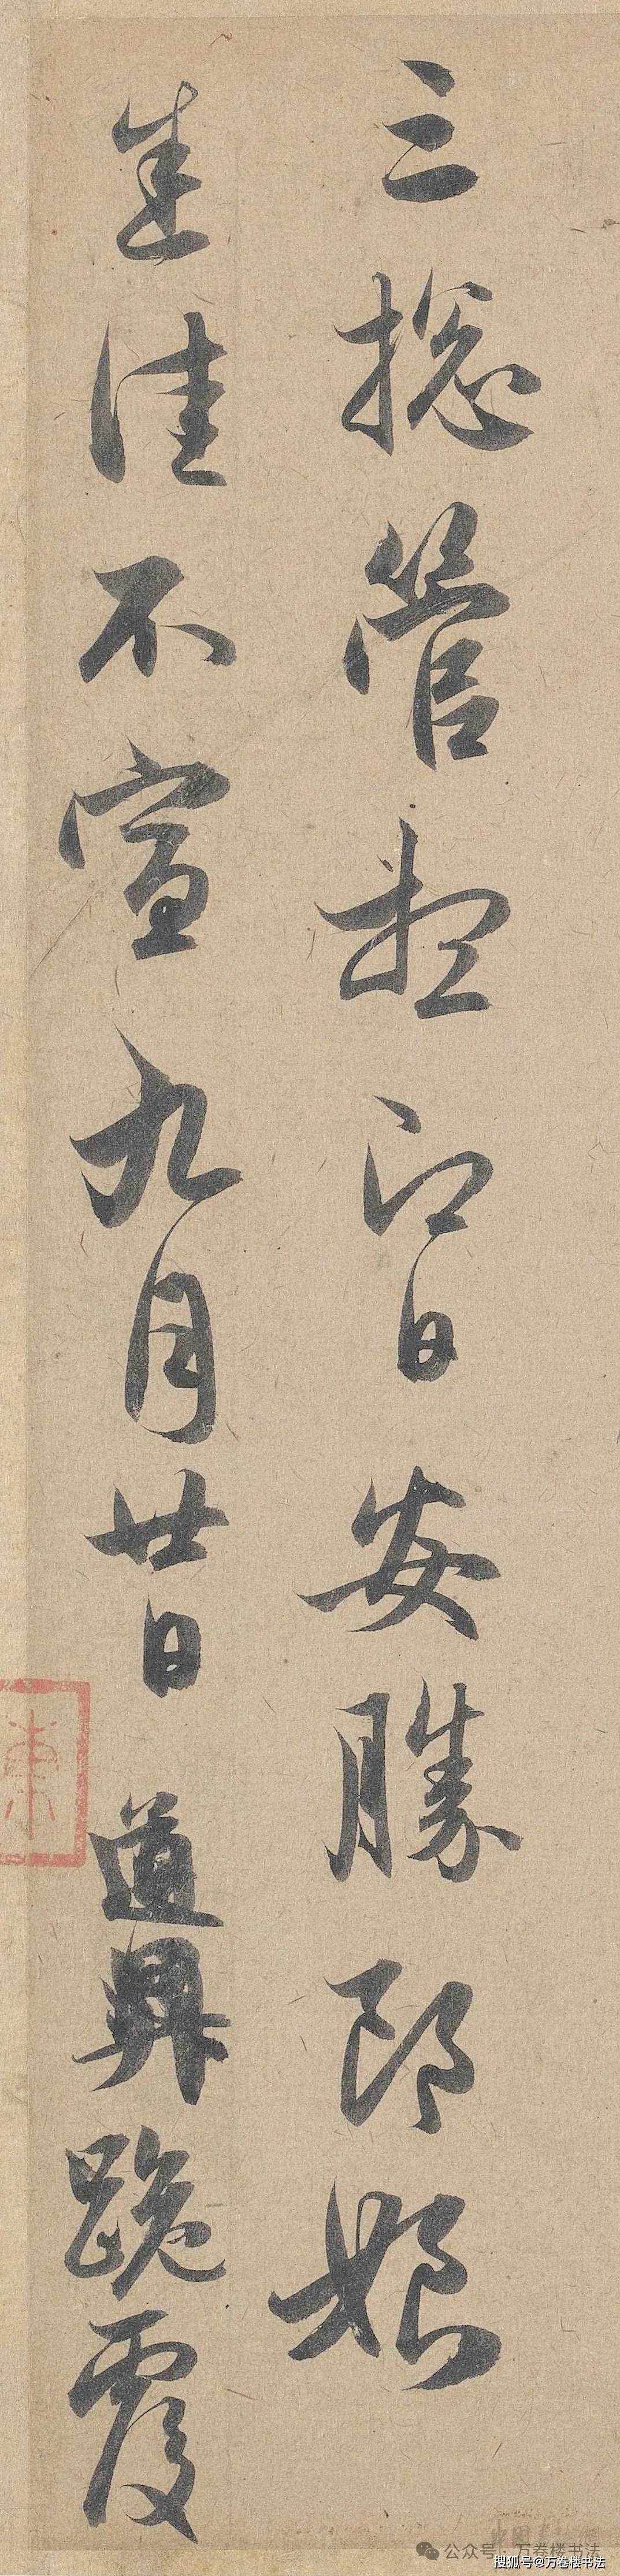 三総管想即日安勝郎娘
悉佳不宣九月廿日道昇跪覆
東
公众号 万卷楼书法
搜狐号@万卷楼书法